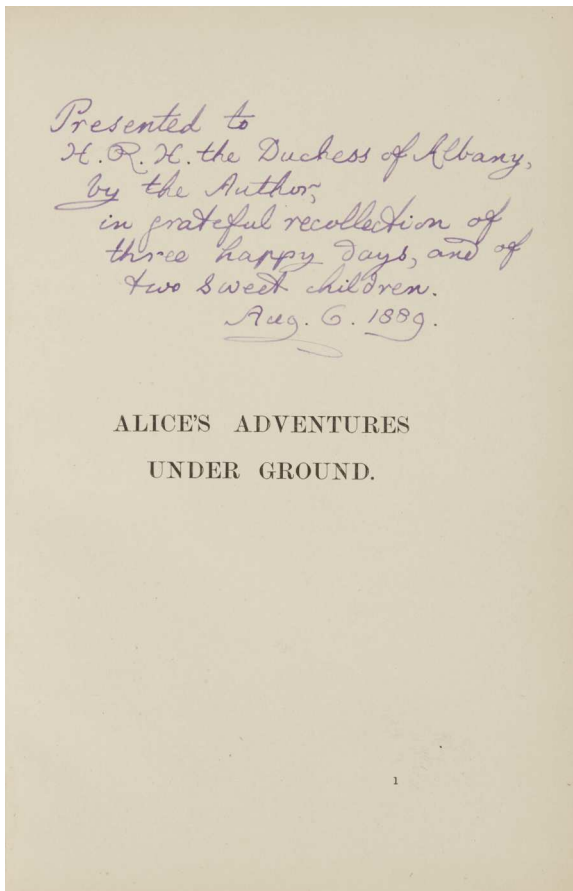 Presented to
H. R. H. the Duchess of Albany,
by the Author,
in grateful recollection of
three happy days, and of
two sweet children.
Aug. 6. 1889.
ALICE'S ADVENTURES
UNDER GROUND.
1